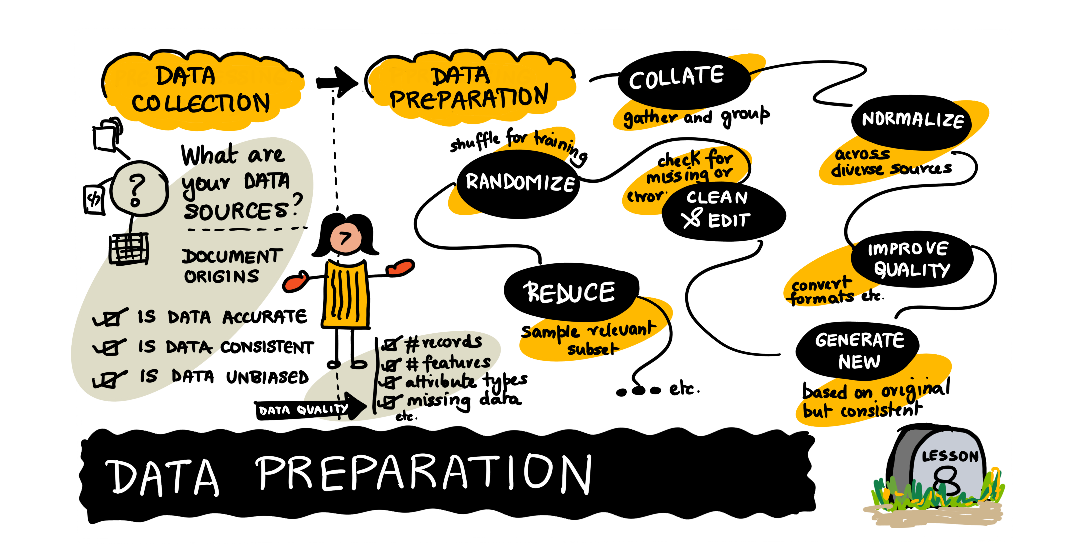 DATA
COLLECTION
DATA
PREPARATION
COLLATE
gather and group
NORMALIZE
across
diverse sources
IMPROVE
QUALITY
convert
formats etc.
GENERATE
NEW
based on original
but consistent
check for
missing or
error
CLEAN
& EDIT
shuffle for training
RANDOMIZE
REDUCE
Sample relevant
subset
etc.
?
</>
What are
your DATA
SOURCES?
DOCUMENT
ORIGINS
IS DATA ACCURATE
IS DATA CONSISTENT
IS DATA UNBIASED
DATA QUALITY
# records
# features
attribute types
missing data
etc.
DATA PREPARATION
LESSON
8